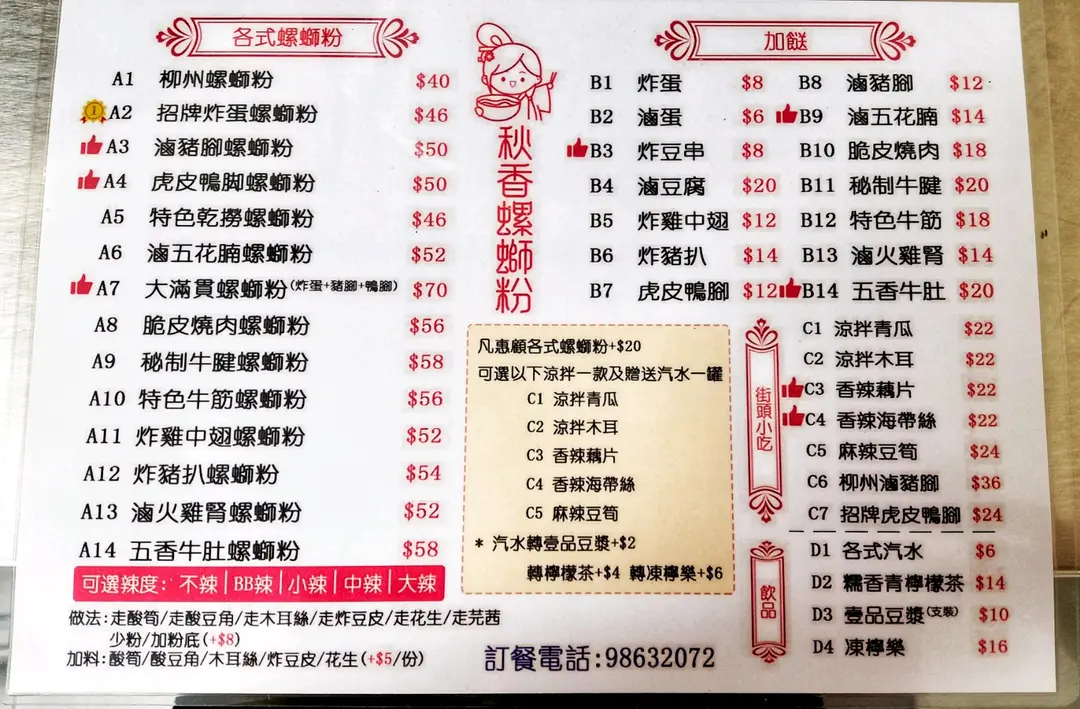 各式螺螄粉
A1 柳州螺螄粉 $40
A2 招牌炸蛋螺螄粉 $46
A3 滷豬腳螺螄粉 $50
A4 虎皮鴨脚螺螄粉 $50
A5 特色乾撈螺螄粉 $46
A6 滷五花腩螺螄粉 $52
A7 大滿貫螺螄粉(炸蛋+豬腳+鴨腳) $70
A8 脆皮燒肉螺螄粉 $56
A9 秘制牛腱螺螄粉 $58
A10 特色牛筋螺螄粉 $56
A11 炸雞中翅螺螄粉 $52
A12 炸豬扒螺螄粉 $54
A13 滷火雞腎螺螄粉 $52
A14 五香牛肚螺螄粉 $58
可選辣度: 不辣|BB辣|小辣|中辣|大辣
做法:走酸筍/走酸豆角/走木耳絲/走炸豆皮/走花生/走芫茜
少粉/加粉底(+$8)
加料:酸筍/酸豆角/木耳絲/炸豆皮/花生(+$5/份)
秋香螺螄粉
加餸
B1 炸蛋 $8
B2 滷蛋 $6
B3 炸豆串 $8
B4 滷豆腐 $20
B5 炸雞中翅 $12
B6 炸豬扒 $14
B7 虎皮鴨腳 $12
B8 滷豬腳 $12
B9 滷五花腩 $14
B10 脆皮燒肉 $18
B11 秘制牛腱 $20
B12 特色牛筋 $18
B13 滷火雞腎 $14
B14 五香牛肚 $20
凡惠顧各式螺螄粉+$20
可選以下涼拌一款及贈送汽水一罐
C1 涼拌青瓜
C2 涼拌木耳
C3 香辣藕片
C4 香辣海帶絲
C5 麻辣豆筍
* 汽水轉壹品豆漿+$2
轉檸檬茶+$4 轉凍檸樂+$6
訂餐電話:98632072
街頭小吃
C1 涼拌青瓜 $22
C2 涼拌木耳 $22
C3 香辣藕片 $22
C4 香辣海帶絲 $22
C5 麻辣豆筍 $24
C6 柳州滷豬腳 $36
C7 招牌虎皮鴨腳 $24
飲品
D1 各式汽水 $6
D2 糯香青檸檬茶 $14
D3 壹品豆漿(支裝) $10
D4 凍檸樂 $16